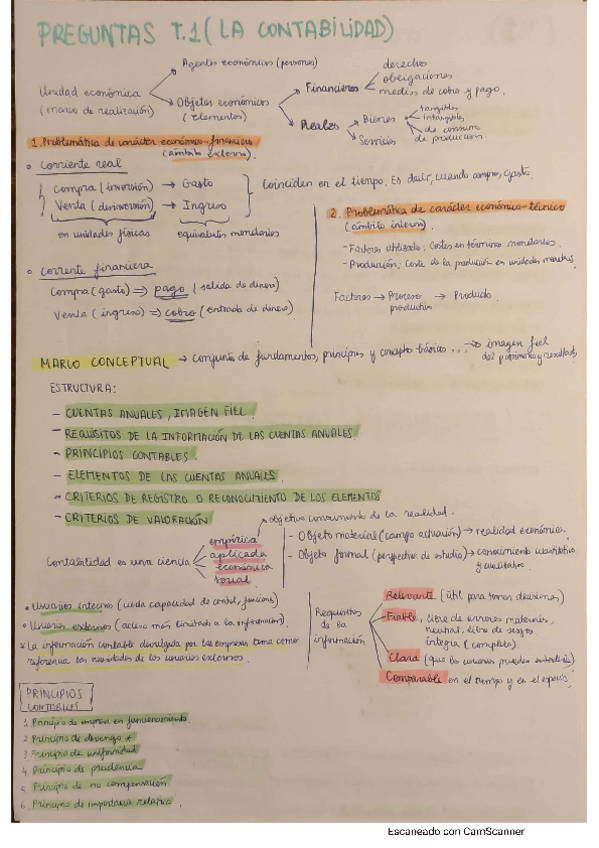 PREGUNTAS T.1 ( LA CONTABILIDAD)
Unidad económica
(marco de realización)
Agentes económicos (personas)
Objetos económicos
(elementos)
Financieros
derechos
obligaciones
medios de cobro y pago.
Reales
Bienes
tangibles
intangibles
de consumo
de producción.
Servicios
1. Problemática de carácter económico-financiero
(ámbito externo).
Corriente real
Compra (inversión) → Gasto
Venta (desinversión) → Ingreso
en unidades físicas
equivalentes monetarios
Coinciden en el tiempo. Es decir, cuando compras, gasto.
Corriente financiera
Compra (gasto) ⇒ pago (salida de dinero)
Venta (ingreso) ⇒ cobro (entrada de dinero)
2. Problemática de carácter económico-técnico
(ámbito interno).
- Factores utilizados; Costes en términos monetarios.
- Producción; Coste de la producción en unidades
Factores → Proceso productivo → Producto.
MARCO CONCEPTUAL → conjunto de fundamentos, principios y conceptos básicos ... → imagen fiel
del patrimonio y resultados
ESTRUCTURA:
- CUENTAS ANUALES, IMAGEN FIEL.
- REQUISITOS DE LA INFORMACIÓN DE LAS CUENTAS ANUALES.
- PRINCIPIOS CONTABLES.
- ELEMENTOS DE LAS CUENTAS ANUALES.
- CRITERIOS DE REGISTRO O RECONOCIMIENTO DE LOS ELEMENTOS
- CRITERIOS DE VALORACIÓN
Contabilidad es una ciencia
empírica → objetivo conocimiento de la realidad.
aplicada
económica
social.
- Objeto material (campo actuación) → realidad económica.
- Objeto formal (perspectiva de estudio) → conocimiento cuantitativo
y cualitativo.
Usuarios internos
Usuarios externos (acceso más limitado a la información).
La información contable divulgada por las empresas toma como
referencia las necesidades de los usuarios externos.
Requisitos
de la
información
Relevante (útil para tomar decisiones)
Fiable, libre de errores materiales,
neutral, libre de sesgos
íntegra (completa).
Clara
Comparable en el tiempo y en el espacio.
PRINCIPIOS
CONTABLES
1. Principio de empresa en funcionamiento
2. Principio de devengo *
3. Principio de uniformidad
4. Principio de prudencia
5. Principio de no compensación
6. Principio de importancia relativa.
Escaneado con CamScanner